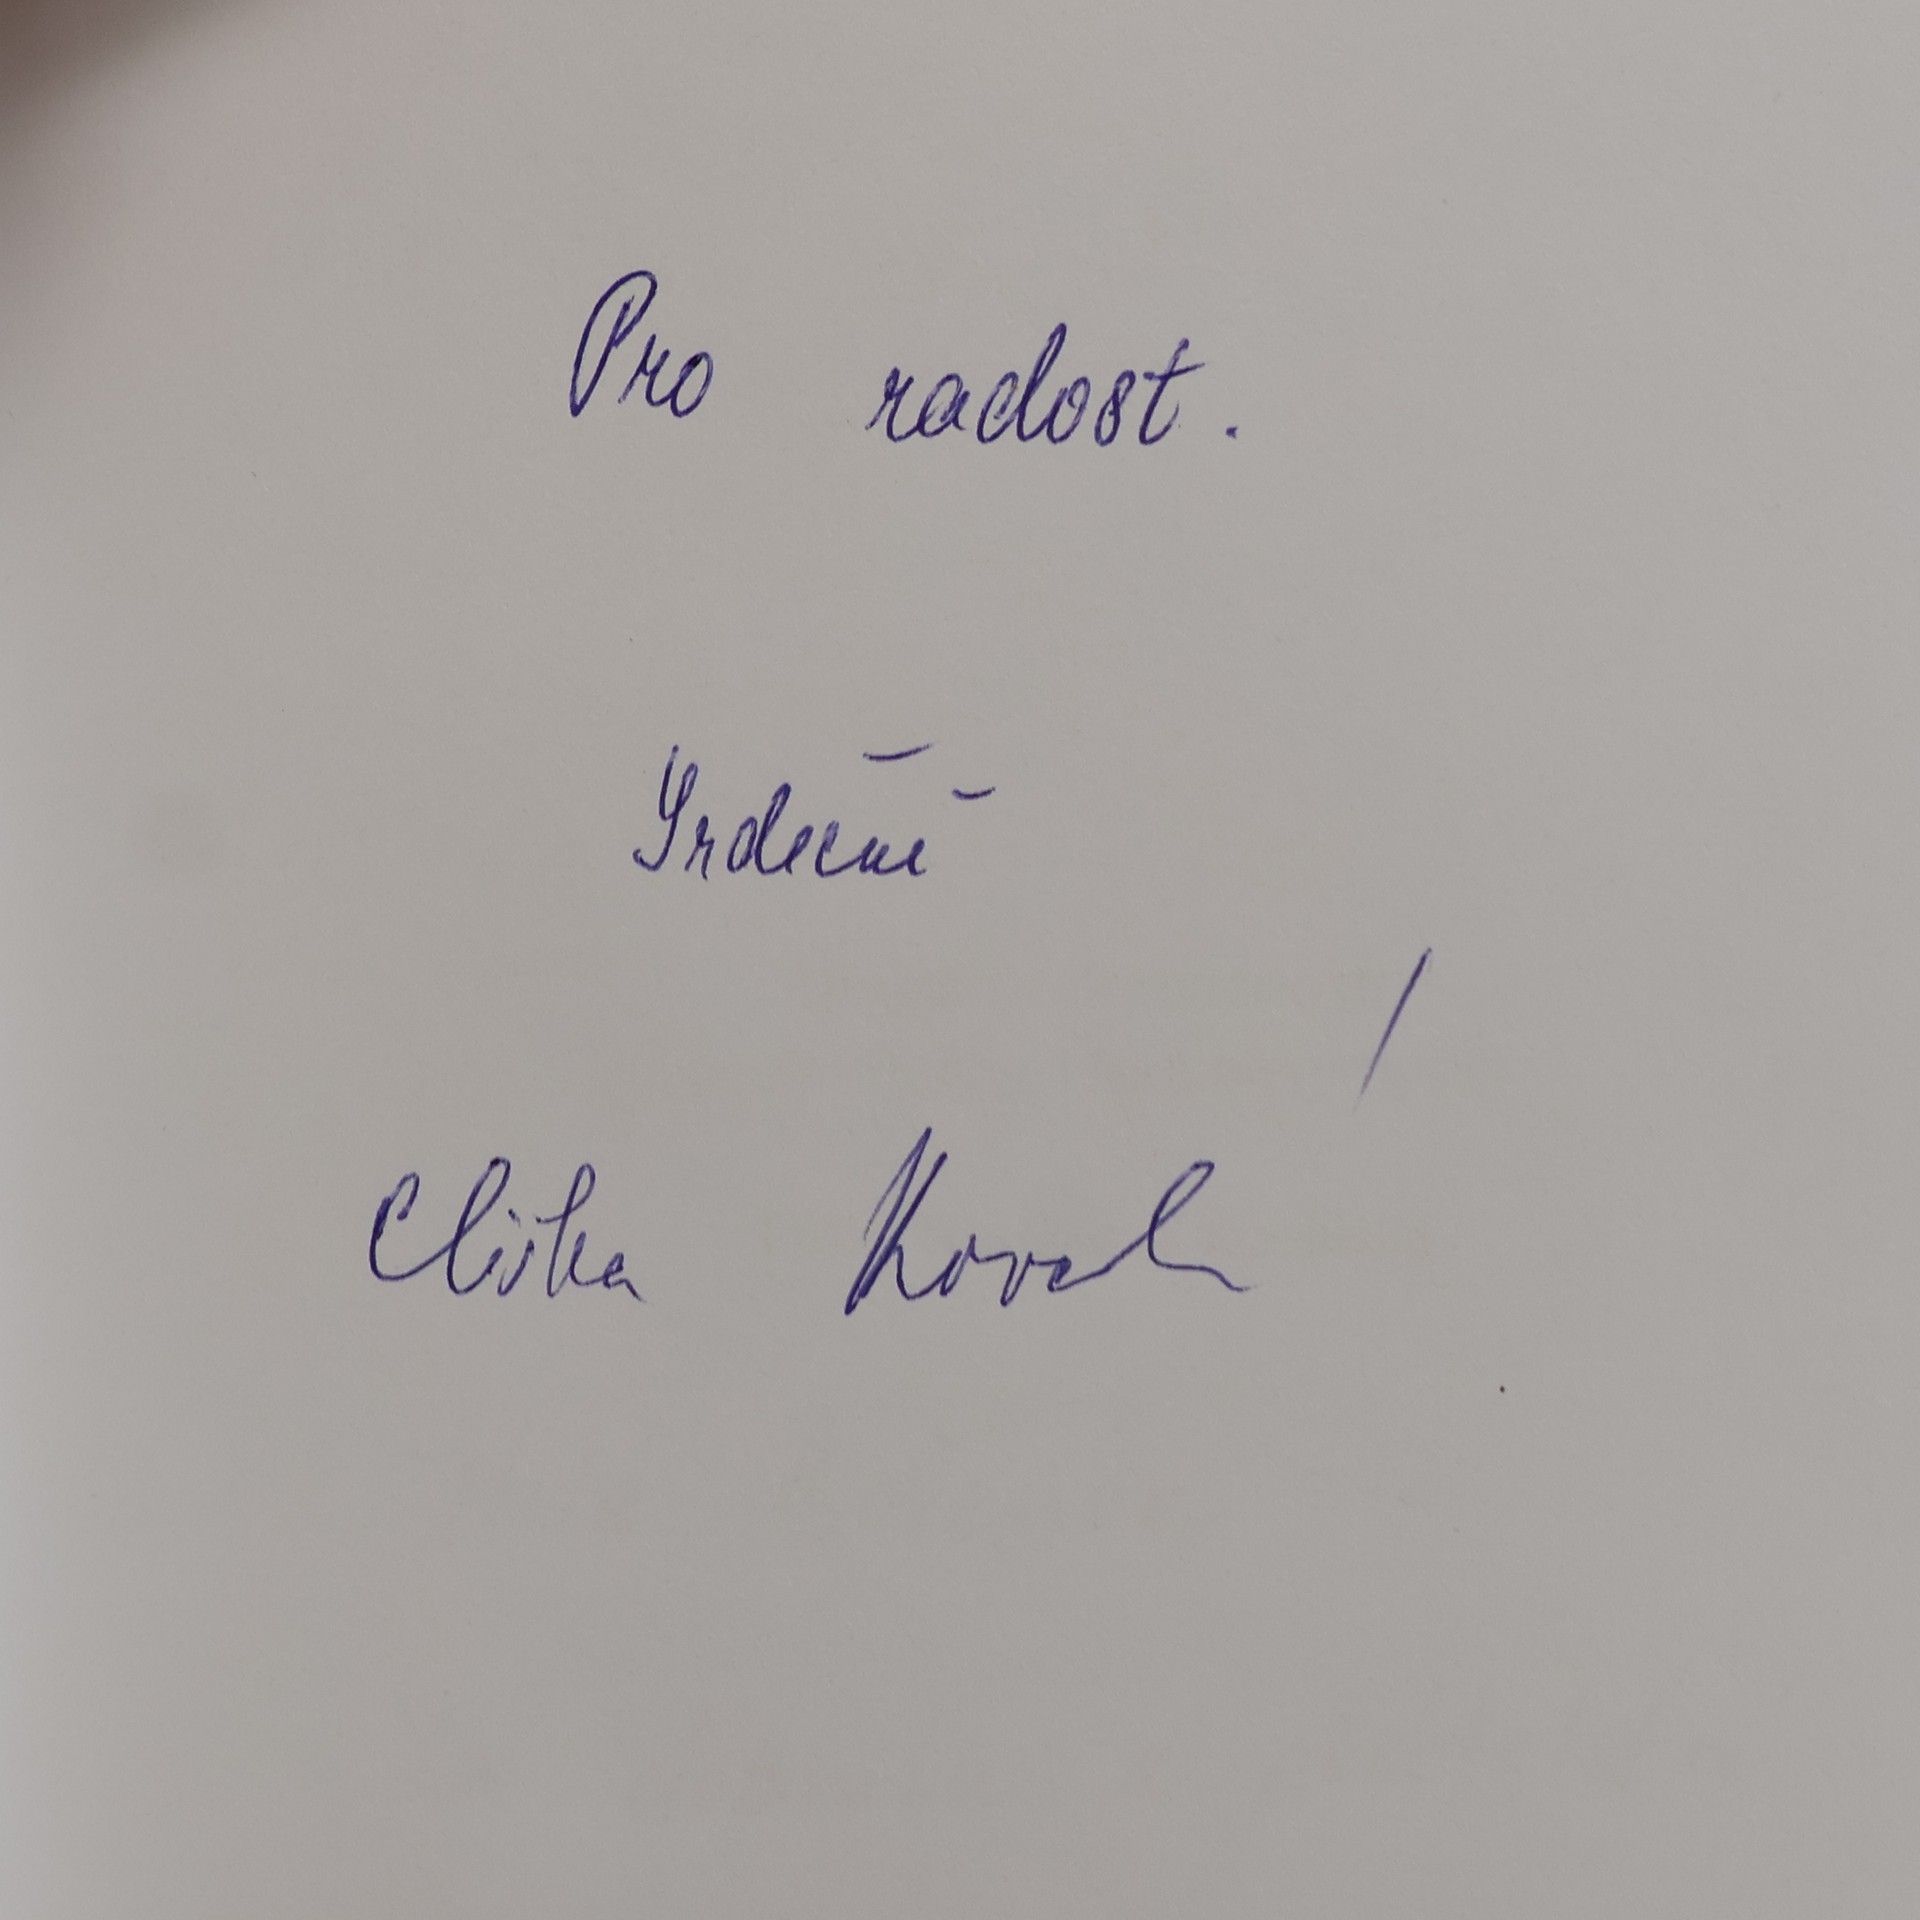 Pro radost.
Srdečně
Eliška Kovář